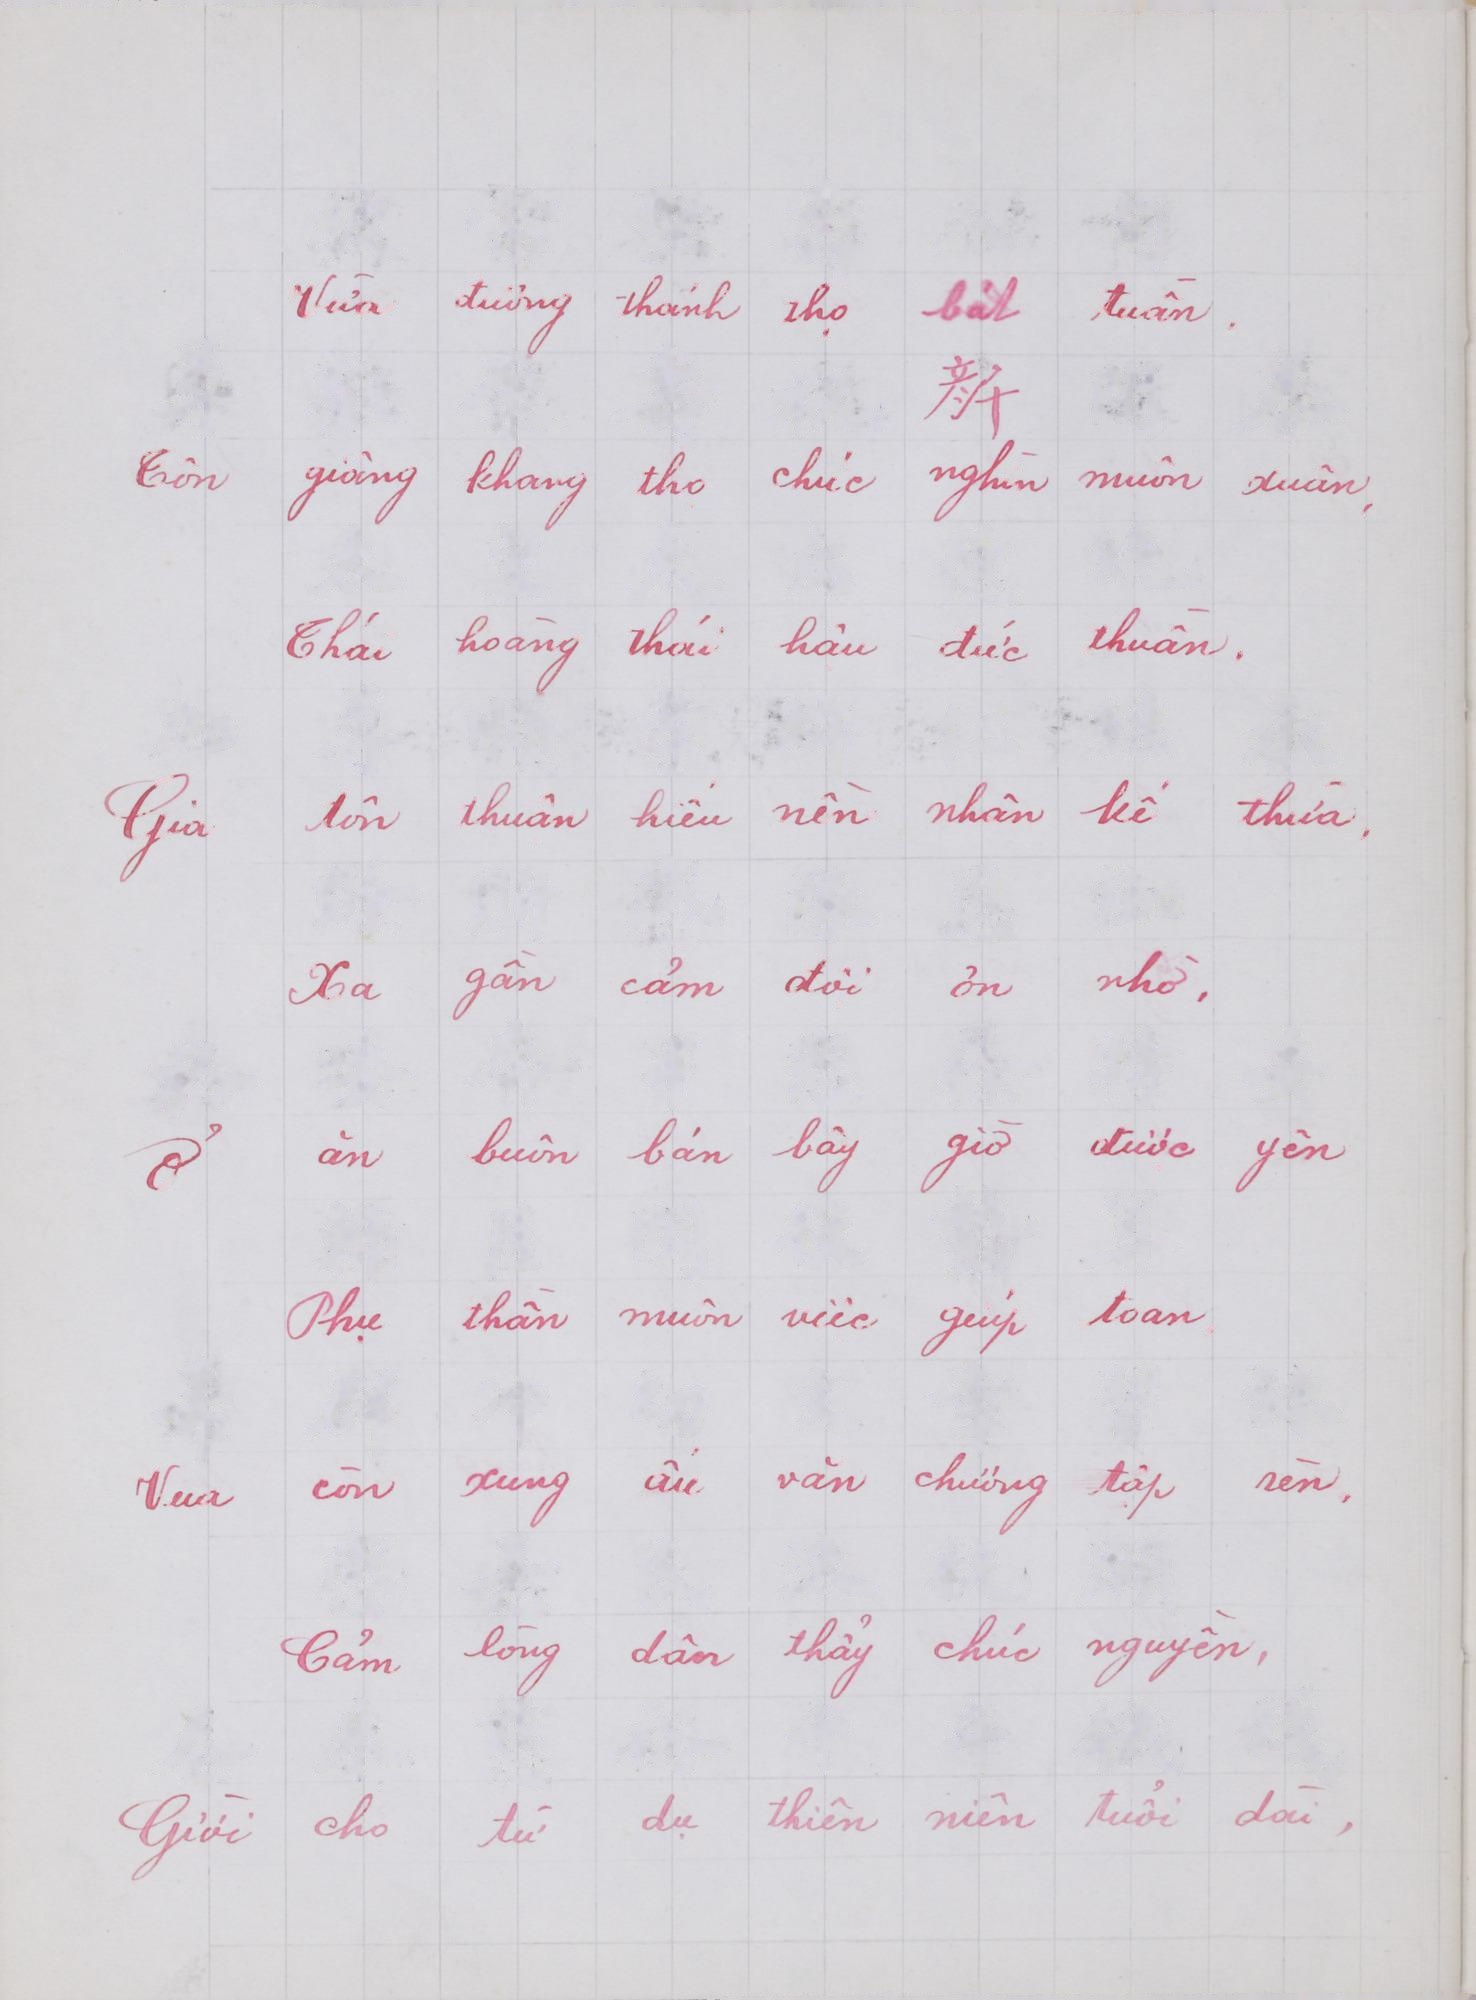 Vừa đương thánh thọ bát tuần.
Tôn giàng khang thọ chúc nghìn muôn xuân,
Thái hoàng thái hậu đức thuần.
Gia tôn thuận hiếu nền nhân kế thừa,
Xa gần cảm đội ơn nhờ,
Ở ăn buôn bán bây giờ được yên
Phụ thần muôn việc giúp toan
Vua còn xung ấu văn chương tập rèn,
Cảm lòng dân thảy chúc nguyền,
Giời cho từ dụ thiên niên tuổi dài,